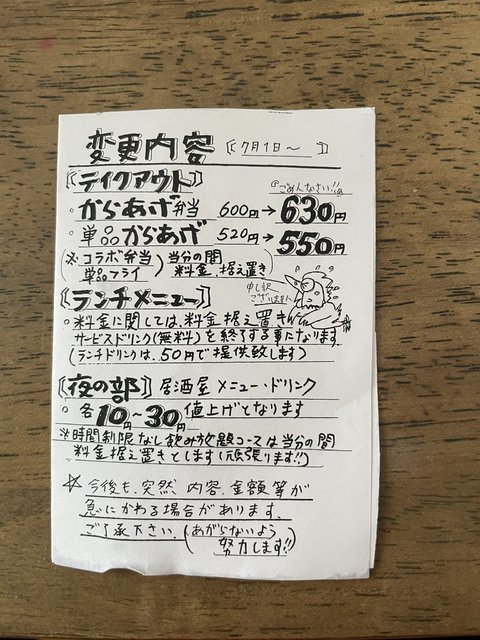 変更内容 〘7月1日〜〙
〘テイクアウト〙
ごめんなさい!!
。からあげ弁当 600円→630円
。単品からあげ 520円→550円
(※コラボ弁当 単品フライ) 当分の間 料金据え置き
申し訳
ございません
〘ランチメニュー〙
。料金に関しては、料金据え置き
サービスドリンク(無料)を終了する事になります
(ランチドリンクは、50円で提供致します)
〘夜の部〙 居酒屋メニュー・ドリンク
。各10円〜30円値上げとなります
※時間制限なし飲み放題コースは当分の間
料金据え置きとします(頑張ります!!)
☆今後も、突然、内容、金額等が
急にかわる場合があります。
ご了承下さい。(あがらないよう
努力します!!)